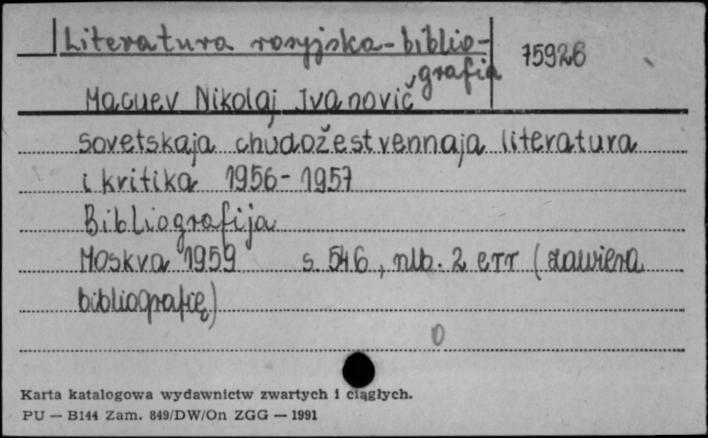 Literatura rosyjska - biblio-
grafia
75926
Macuev Nikolaj Ivanovič
Sovetskaja chudožestvennaja literatura
i kritika 1956-1957
Bibliografija
Moskva 1959 s. 546, nlb. 2 err (zawiera
bibliografię)
0
Karta katalogowa wydawnictw zwartych i ciągłych.
PU — B144 Zam. 849/DW/On ZGG — 1991